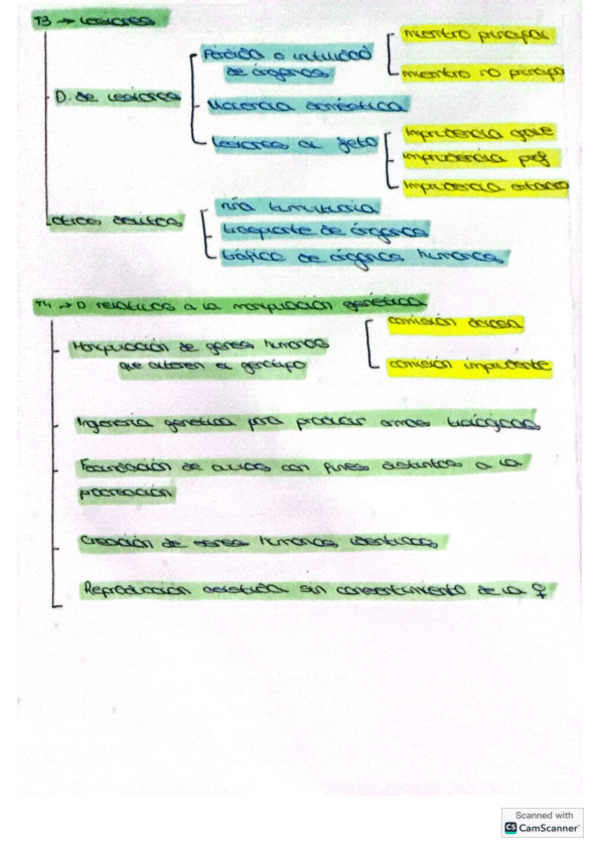 T3 → Lesiones
miembro principal
Pérdida o inutilidad
de órganos
miembro no principal
D. de lesiones
Violencia doméstica
Imprudencia grave
Lesiones al feto
Imprudencia prof
Imprudencia
Riña tumultuaria
otros delitos
trasporte de órganos
tráfico de órganos humanos
T4 → D relativos a la manipulación genética
comisión dolosa
Manipulación de genes humanos
que alteren el genotipo
comisión imprudente
Ingeniería genética para producir armas biológicas
Fecundación de óvulos con fines distintos a la
procreación
Creación de seres humanos idénticos
Reproducción asistida sin consentimiento de la ♀
Scanned with
CS CamScanner